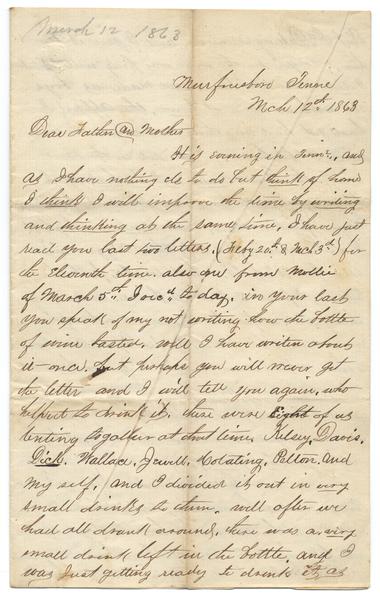 March 12 1863
Murfresboro Tenne
Mch 12th 1863
Dear Father and Mother
It is evning in Tenne., and
as I have nothing els to do but think of home
I think I will improve the time by writing
and thinkting at the same time, I have just
read you last two letters. (Feby 20th & Mch 3d) for
the Eleventh time. also one from Mollie
of March 5th I recd to day. in your last
you speak of my not writing how the bottle
of wine tasted. well I have writen about
it once. but perhaps you will never get
the letter and I will tell you again, who
helped to drink it. there were Eight of us
tenting togather at that time. Kelsey, Davis.
Dick. Wallace. Jewell. Pelton. and
my self. and I divided it out in very
small drinks to them. well after we
had all drank around. there was a very
small drink left in the bottle. and I
was just getting ready to drink it, as